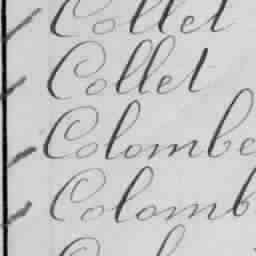 Collet
Collet
Colombe
Colomb